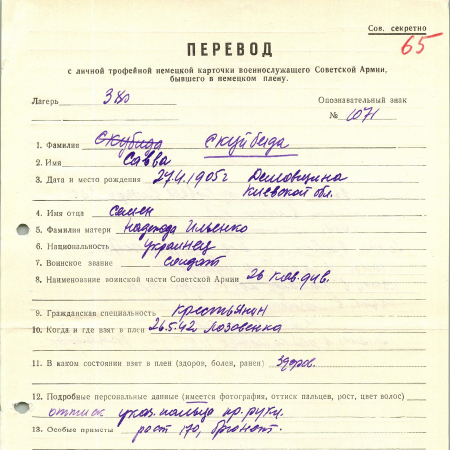 Сов. секретно
65
ПЕРЕВОД
с личной трофейной немецкой карточки военнослужащего Советской Армии,
бывшего в немецком плену.
Лагерь 380 Опознавательный знак
№ 1071
1. Фамилия Скубида Скуйбида
2. Имя Савва
3. Дата и место рождения 27.4.1905г Демовщина
Киевской обл.
4. Имя отца Семен
5. Фамилия матери Надежда Ильенко
6. Национальность украинец
7. Воинское звание солдат
8. Наименование воинской части Советской Армии 26 кав. див.
9. Гражданская специальность крестьянин
10. Когда и где взят в плен 26.5.42 Лозовенка
11. В каком состоянии взят в плен (здоров, болен, ранен) здоров.
12. Подробные персональные данные (имеется фотография, оттиск пальцев, рост, цвет волос)
оттиск указ. пальца пр. руки.
13. Особые приметы рост 170,